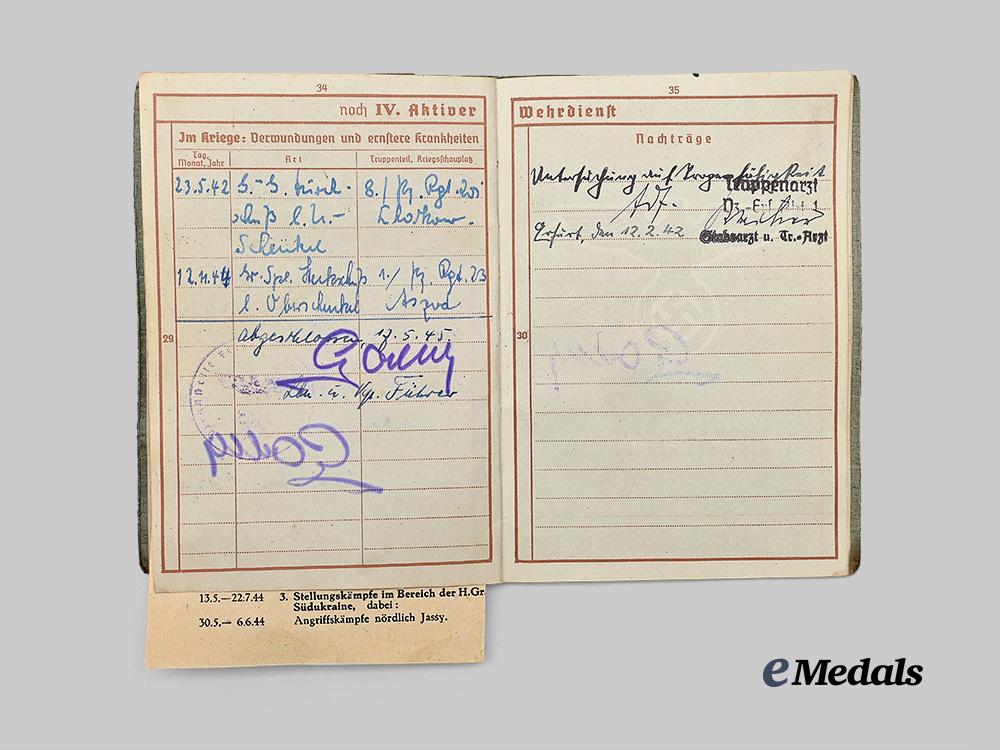 34
noch IV. Aktiver
Im Kriege: Verwundungen und ernstere Krankheiten
Tag, Monat, Jahr
Art
Truppenteil, Kriegsschauplatz
23.5.42 G.-G. Durch- 8./ Pz. Rgt. 201
schuß l. U.- Charkow.
Schenkel
12.11.44 Gr. Spl. Steckschuß 1./ Pz. Rgt. 23
l. Oberschenkel
29
abgeschlossen, 17.5.45.
Ltn. u. Kp. Führer
35
Wehrdienst
Nachträge
Untersuchung auf Tropenfähigkeit
Truppenarzt
Erfurt, den 12.2.42
Stabsarzt u. Tr.-Arzt
30
13.5.—22.7.44 3. Stellungskämpfe im Bereich der H.Gr
Südukraine, dabei:
30.5.— 6.6.44 Angriffskämpfe nördlich Jassy.
eMedals